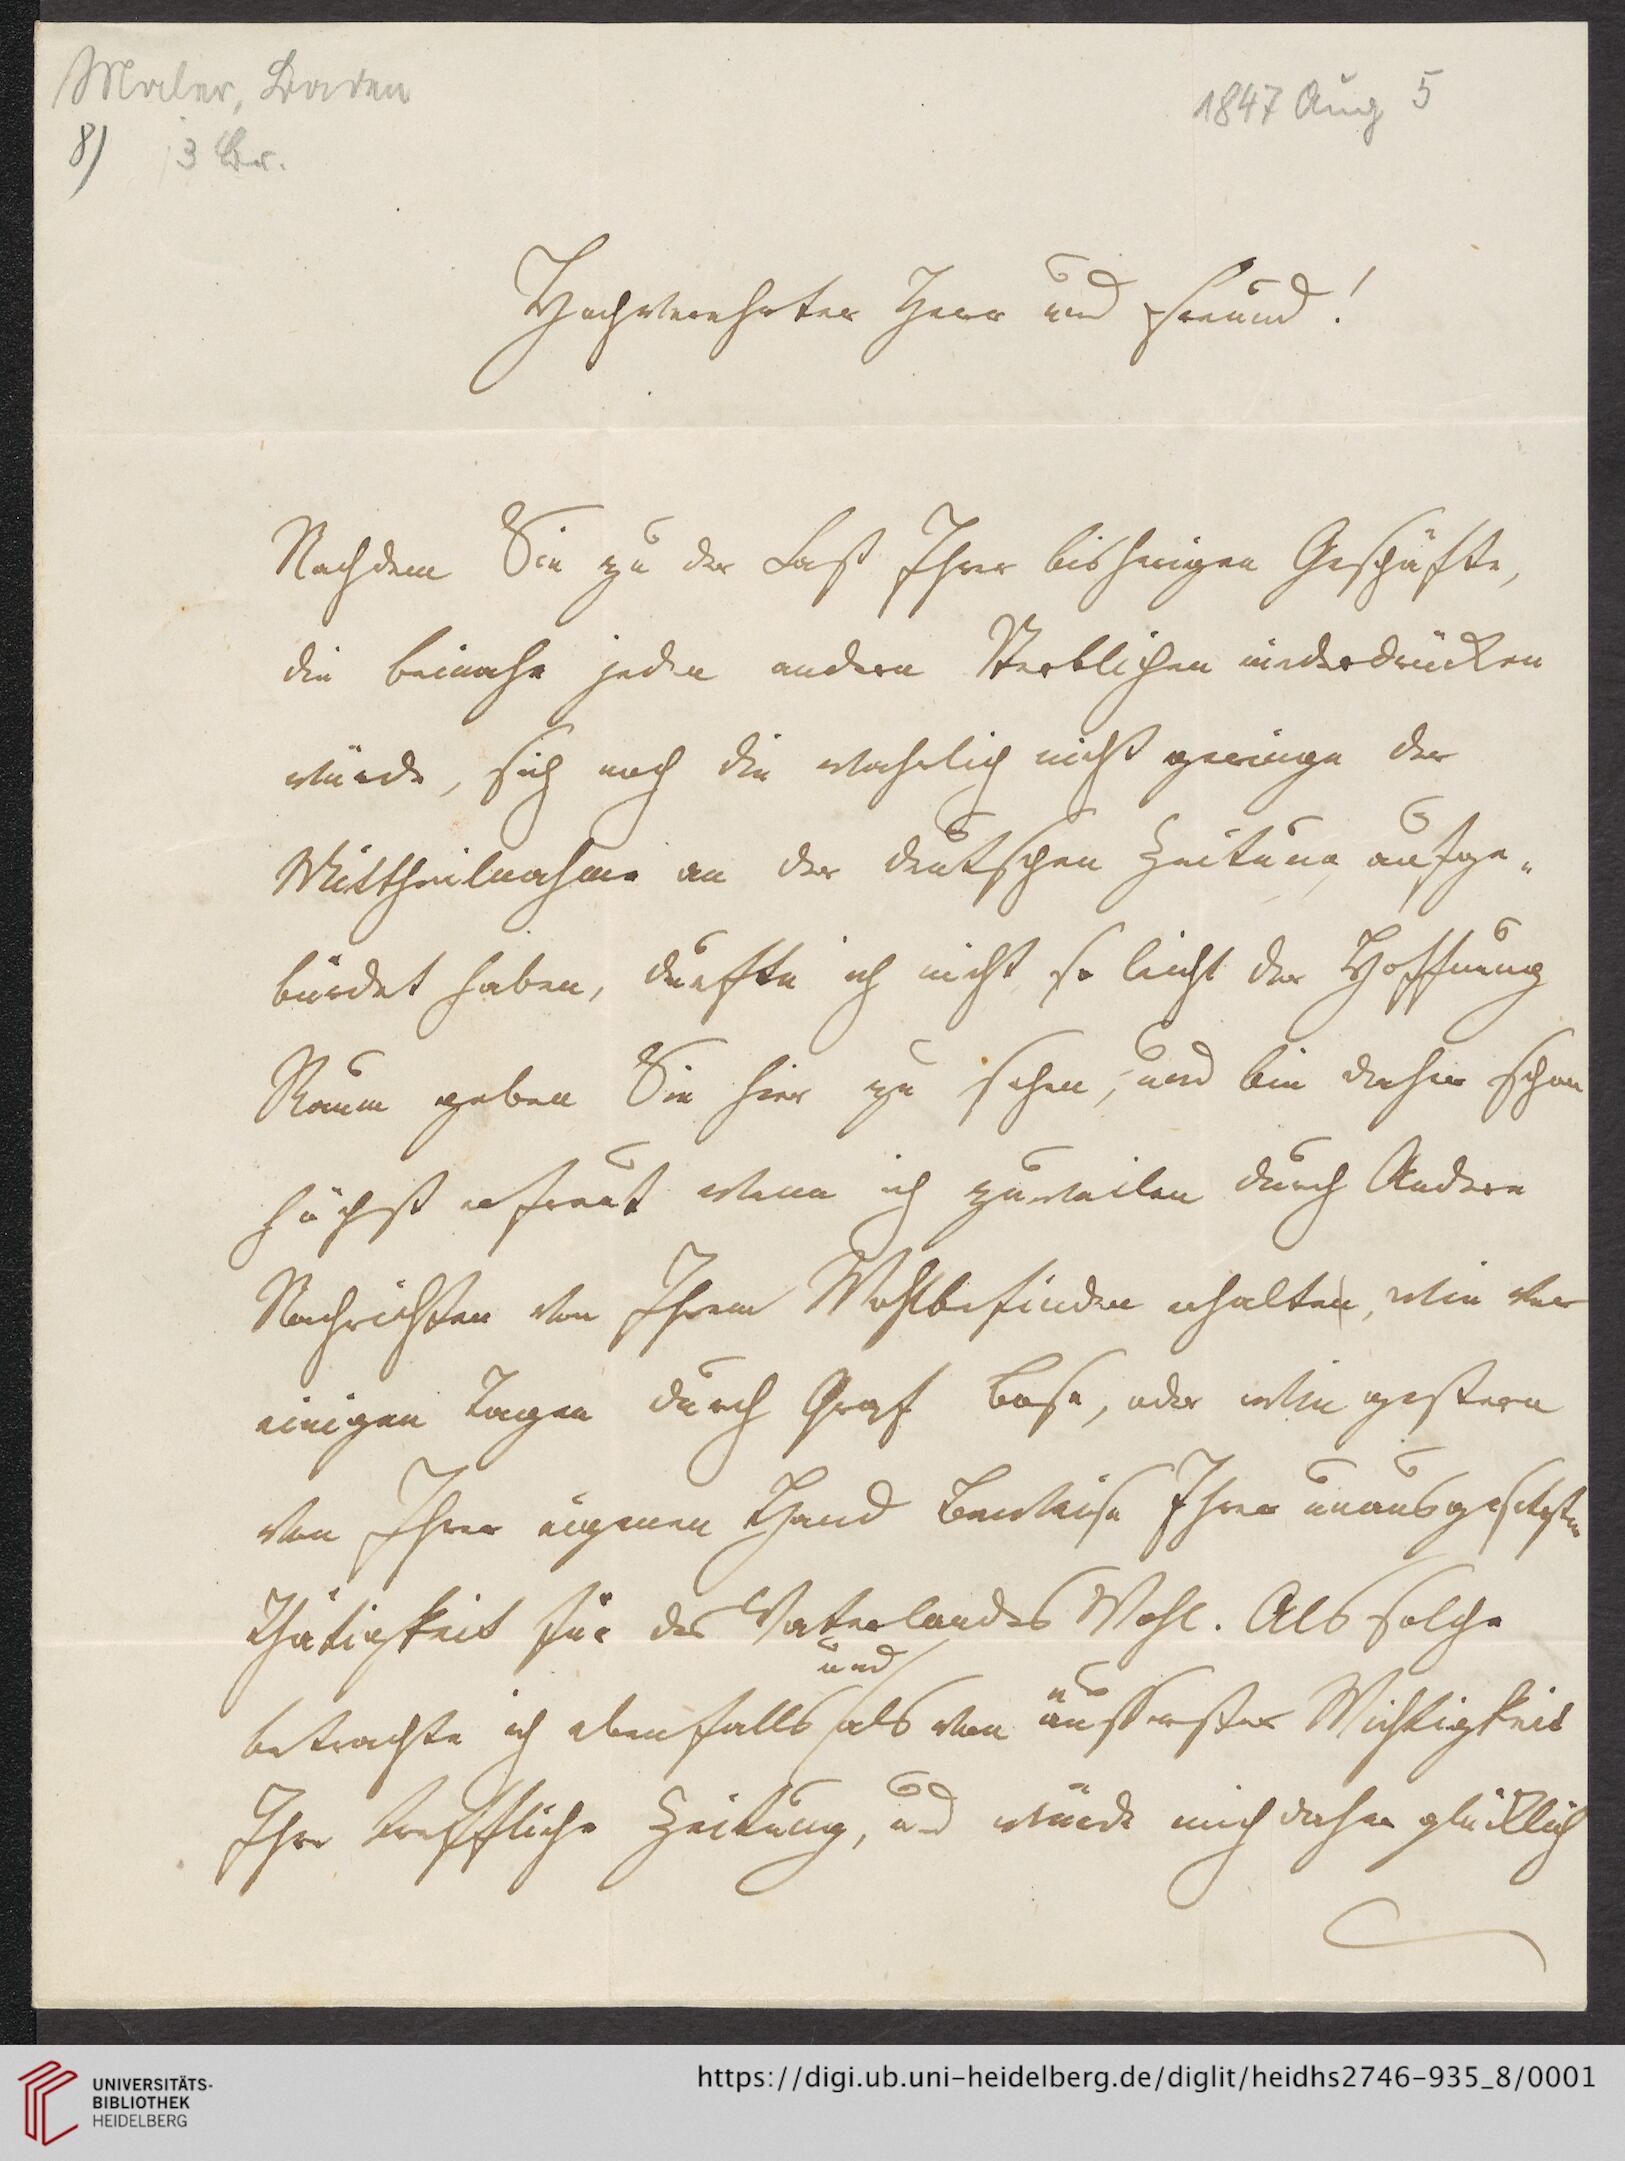 Maler, Baden
1847 Aug 5
8) 3 Br.
Hochverehrter Herr und Freund!
Nachdem Sie zu der Last Ihrer bisherigen Geschäfte,
die beinahe jeden andern Sterblichen niederdrücken
würde, sich noch die wahrlich nicht geringe der
Mittheilnahme an der deutschen Zeitung aufge-
bürdet haben, durfte ich nicht so leicht der Hoffnung
Raum geben Sie hier zu sehen, und bin daher schon
höchst erfreut wenn ich zuweilen durch Andere
Nachrichten von Ihrem Wohlbefinden erhalten, wie vor
einigen Tagen durch Graf Bose, oder wie gestern
von Ihrer eigenen Hand Beweise Ihrer unausgesetzten
Thätigkeit für des Vaterlandes Wohl. Als solche
und
betrachte ich ebenfalls als von äusserster Wichtigkeit
Ihre treffliche Zeitung, und würde mich daher glücklich
UNIVERSITÄTS-
BIBLIOTHEK
HEIDELBERG
https://digi.ub.uni-heidelberg.de/diglit/heidhs2746-935_8/0001